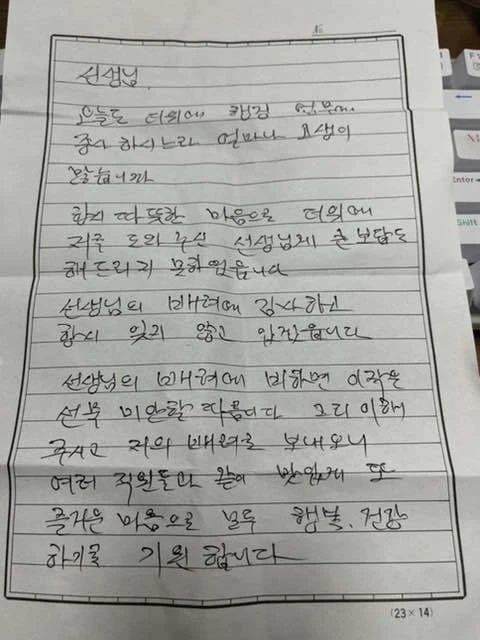 No
선생님
오늘도 더위에 현장 업무에
종사 하시느라 얼마나 고생이
많습니까
항시 따뜻한 마음으로 더위에
저를 도와 주신 선생님께 큰 보답도
해드리지 못하였읍니다
선생님의 배려에 감사하고
항시 잊지 않고 있겠읍니다
선생님의 배려에 비하면 이작은
선물 미안할 따름이다 그리 이해
주시고 저의 배려로 보내오니
여러 직원들과 같이 맛있게 또
즐거운 마음으로 모두 행복, 건강
하기를 기원 합니다
(23 × 14)
Enter
Shift